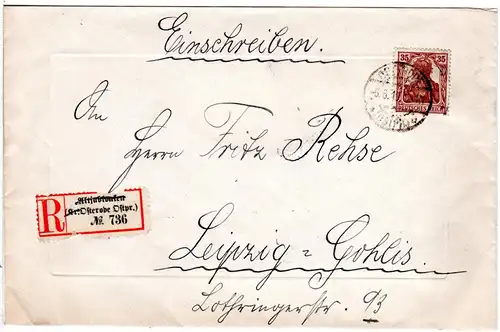 Einschreiben.
35 35
DEUTSCHES REICH
An
Herrn Fritz Rehse
R
Altjablonken
(Kr. Osterode Ostpr.)
№ 736
Leipzig=Gohlis.
Lothringerstr. 93